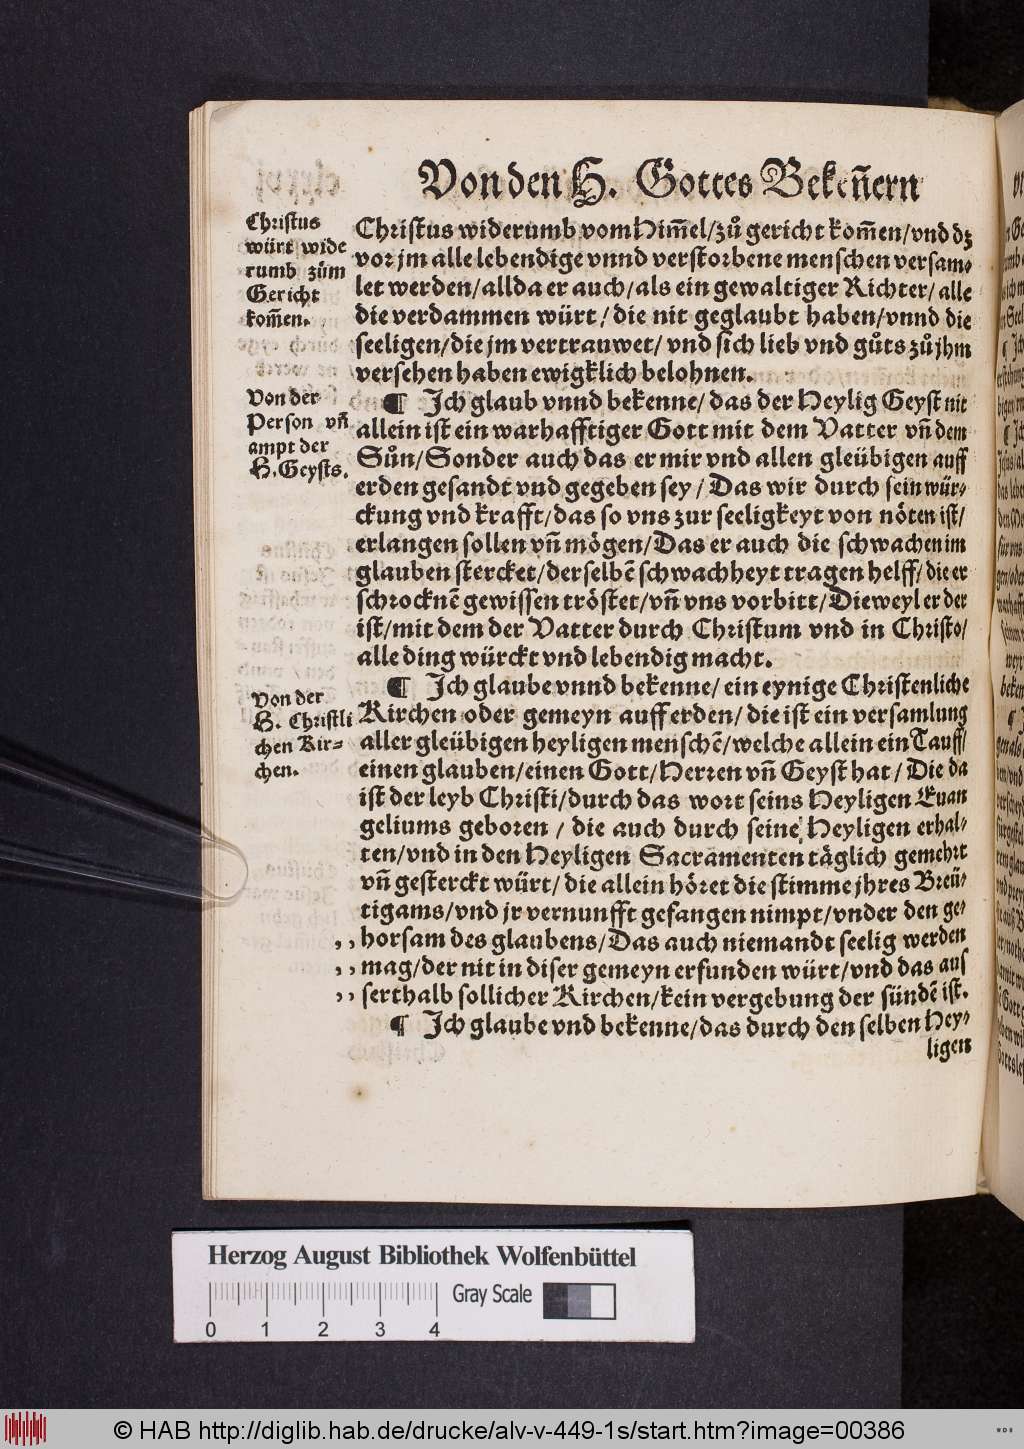 Von den H. Gottes Bekeñern
Christus
würt wide
rumb zům
Gericht
kom̃en.
Christus widerumb vom Him̃el/zů gericht kom̃en/vnd dz
vor jm alle lebendige vnnd verstorbene menschen versam-
let werden/allda er auch/als ein gewaltiger Richter/alle
die verdammen würt/die nit geglaubt haben/vnnd die
seeligen/die jm vertrauwet/vnd sich lieb vnd gůts zů jhm
versehen haben ewigklich belohnen.
Von der
Person vñ
ampt der
H. Geysts.
¶ Ich glaub vnnd bekenne/das der Heylig Geyst nit
allein ist ein warhafftiger Gott mit dem Vatter vñ dem
Sůn/Sonder auch das er mir vnd allen gleübigen auff
erden gesandt vnd gegeben sey/Das wir durch sein wür-
ckung vnd krafft/das so vns zur seeligkeyt von nöten ist/
erlangen sollen vñ mögen/Das er auch die schwachen im
glauben stercket/derselbẽ schwachheyt tragen helff/die er
schrocknẽ gewissen tröstet/vñ vns vorbitt/Dieweyl er der
ist/mit dem der Vatter durch Christum vnd in Christo/
alle ding würckt vnd lebendig macht.
Von der
H. Christli
chen Kir-
chen.
¶ Ich glaube vnnd bekenne/ein eynige Christenliche
Kirchen oder gemeyn auff erden/die ist ein versamlung
aller gleübigen heyligen menschẽ/welche allein ein Tauff/
einen glauben/einen Gott/Herren vñ Geyst hat/Die da
ist der leyb Christi/durch das wort seins Heyligen Euan
geliums geboren/die auch durch seine Heyligen erhal-
ten/vnd in den Heyligen Sacramenten täglich gemehrt
vñ gesterckt würt/die allein höret die stimme jhres Breü-
tigams/vnd jr vernunfft gefangen nimpt/vnder den ge-
,, horsam des glaubens/Das auch niemandt seelig werden
,, mag/der nit in diser gemeyn erfunden würt/vnd das aus
,, serthalb sollicher Kirchen/kein vergebung der sündẽ ist.
¶ Ich glaube vnd bekenne/das durch den selben Hey-
ligen
Herzog August Bibliothek Wolfenbüttel
Gray Scale
0 1 2 3 4
© HAB http://diglib.hab.de/drucke/alv-v-449-1s/start.htm?image=00386